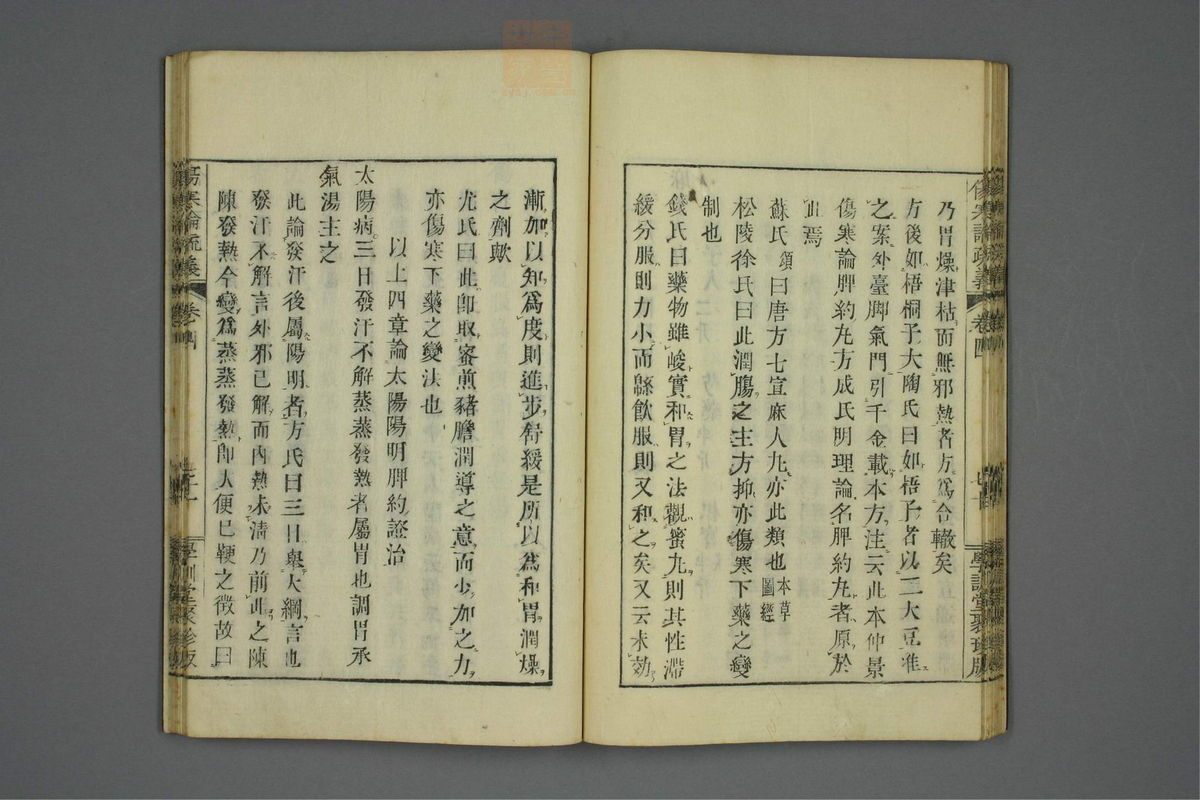 乃胃燥津枯而無邪熱者方爲合轍矣
方後如梧桐子大陶氏曰如梧子者以二大豆准
之案外臺脚氣門引千金載本方注云此本仲景
傷寒論脾約丸方成氏明理論名脾約丸者原於
此焉
蘇氏頌曰唐方七宣麻人丸亦此類也本草圖經
松陵徐氏曰此潤腸之主方抑亦傷寒下藥之變
制也
錢氏曰藥物雖峻實和胃之法觀蜜丸則其性滯
緩分服則力小而緜飲服則又和之矣又云未効
漸加以知爲度則進步舒緩是所以爲和胃潤燥
之劑歟
尤氏曰此卽取蜜煎豬膽潤導之意而少加之力
亦傷寒下藥之變法也
以上四章論太陽陽明脾約證治
太陽病三日發汗不解蒸蒸發熱者屬胃也調胃承
氣湯主之
此論發汗後屬陽明者方氏曰三日舉大綱言也
發汗不解言外邪已解而內熱未淸乃前此之陳
陳發熱今變爲蒸蒸發熱卽大便已鞕之徵故曰
傷寒論疏義
卷四
學訓堂聚珍版